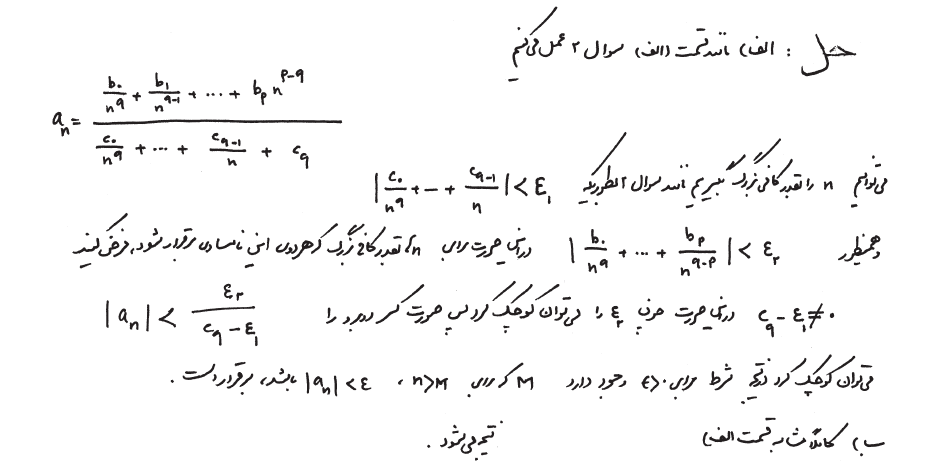 حل : الف) مانند قسمت (الف) سوال ۲ عمل می‌کنیم
a_n = (b_0/n^q + b_1/n^{q-1} + ... + b_p n^{p-q}) / (c_0/n^q + ... + c_{q-1}/n + c_q)
می‌توانیم n را بقدر کافی بزرگ بگیریم مانند سوال ۲ بطوریکه |c_0/n^q + ... + c_{q-1}/n| < ε_1
و همینطور |b_0/n^q + ... + b_p/n^{q-p}| < ε_2 در این صورت برای n بقدر کافی بزرگ که هر دوی این نامساوی برقرار شود، فرض کنید
c_q - ε_1 ≠ 0 در این صورت چون ε_2 را می‌توان کوچک کرد پس صورت کسر دوم را |a_n| < ε_2/(c_q - ε_1)
می‌توان کوچک کرد در نتیجه شرط برای ε>0 وجود دارد M که برای n>M ، |a_n|<ε باشد، برقرار است.
ب) کاملاً مشابه قسمت الف) نتیجه می‌شود.